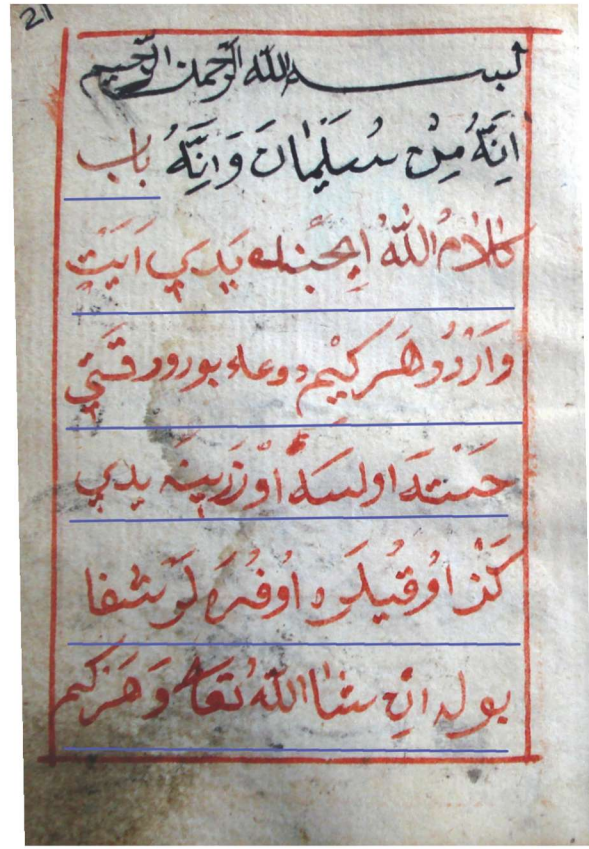 21
بسم الله الرحمن الرحيم
اِنَّهُ مِنْ سُلَيْمَانَ وَاِنَّهُ باب
كَلَامُ اللّٰهُ اِيچِنْده يَدِي اَيَتِ
وَارْدُرْ هَركِيْم دوعاء بورور قَتِي
خَسْتَه اولسَه اُوْزَرِينَه يدي
كَزْ اوُقيَلَر اوُفُرَه لَرْ شفا
بوله اِن شٰاا اللّٰهُ تَعَا وَهَر كيم